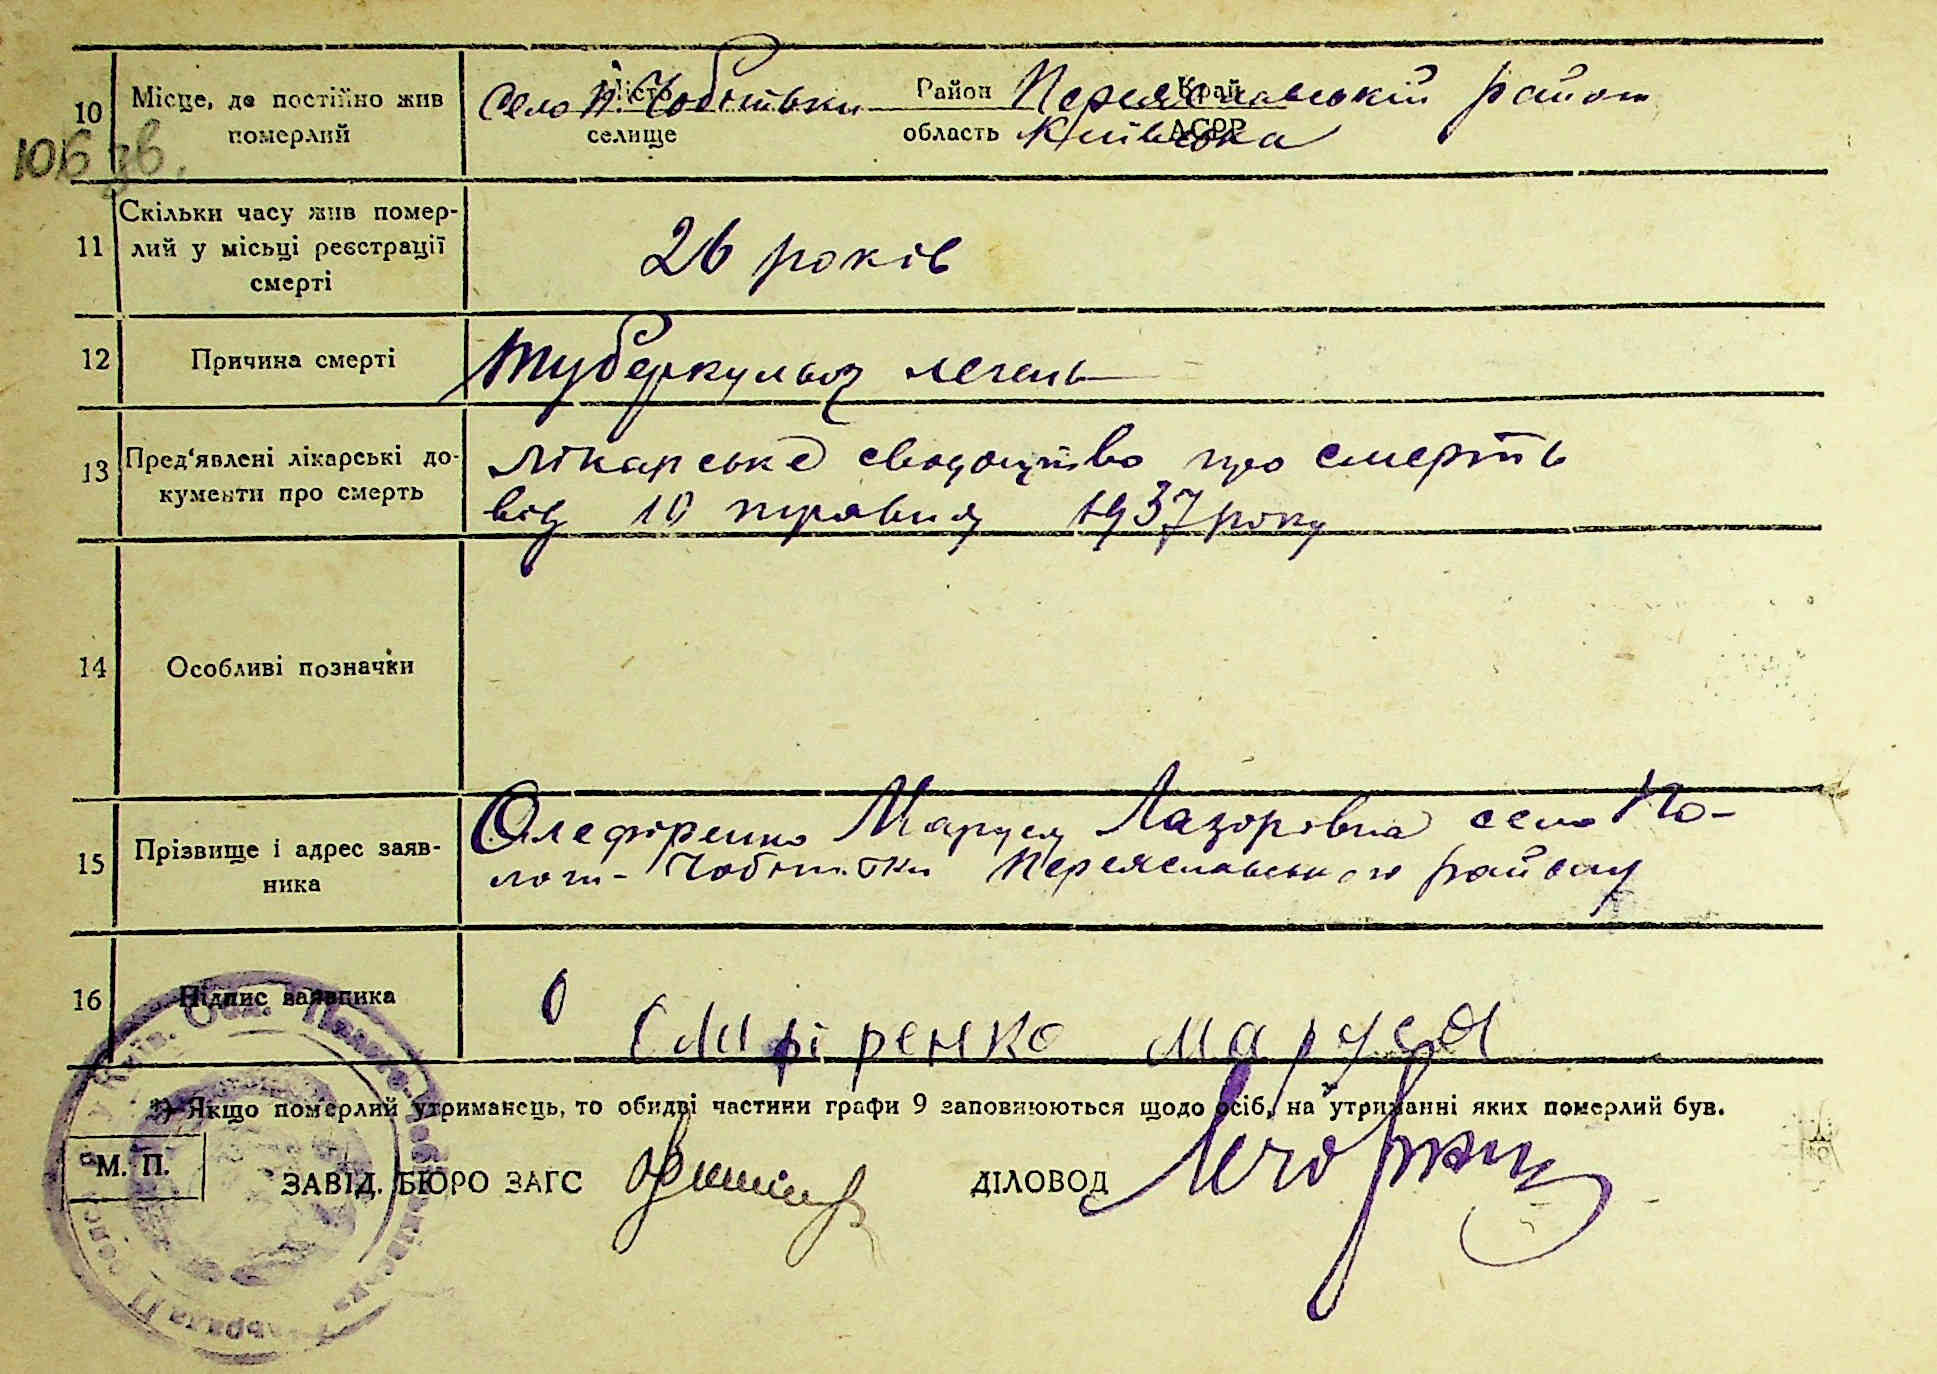 10
Місце, де постійно жив
померлий
Село П. Чобітьки
місто
селище
Район
область
Переяславський район
Київська
Край
АСРР
106 зв.
11
Скільки часу жив помер-
лий у місьці реєстрації
смерті
26 років
12
Причина смерті
Туберкульоз легень
13
Пред'явлені лікарські до-
кументи про смерть
Лікарське свидоцтво про смерть
від 10 травня 1937 року
14
Особливі позначки
15
Прізвище і адрес заяв-
ника
Олефіренко Маруся Лазорівна село По-
логи-Чобітьки Переяславського району
16
Підпис заявника
Олифіренко Маруся
*) Якщо померлий утриманець, то обидві частини графи 9 заповнюються щодо осіб, на утриманні яких померлий був.
М. П.
ЗАВІД. БЮРО ЗАГС
ДІЛОВОД